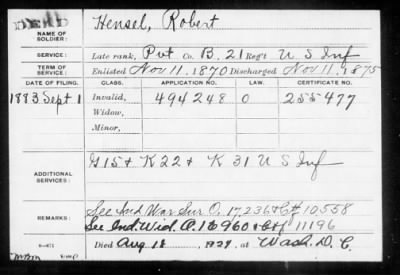 DEAD
NAME OF SOLDIER: Hensel, Robert
SERVICE: Late rank, Pvt Co. B, 21 Reg't U S Inf
TERM OF SERVICE: Enlisted Nov 11, 1870 Discharged Nov 11, 1875
DATE OF FILING. CLASS. APPLICATION NO. LAW. CERTIFICATE NO.
1883 Sept 1 Invalid, 494248 O 255477
Widow,
Minor,
ADDITIONAL SERVICES: G 15 & K 22 & K 31 U S Inf
REMARKS: See Ind War Sur O. 17,236 & C# 10558
See Ind. Wid. O. 16960 & C# 11196
Died Aug 18, 1929, at Wash. D. C.